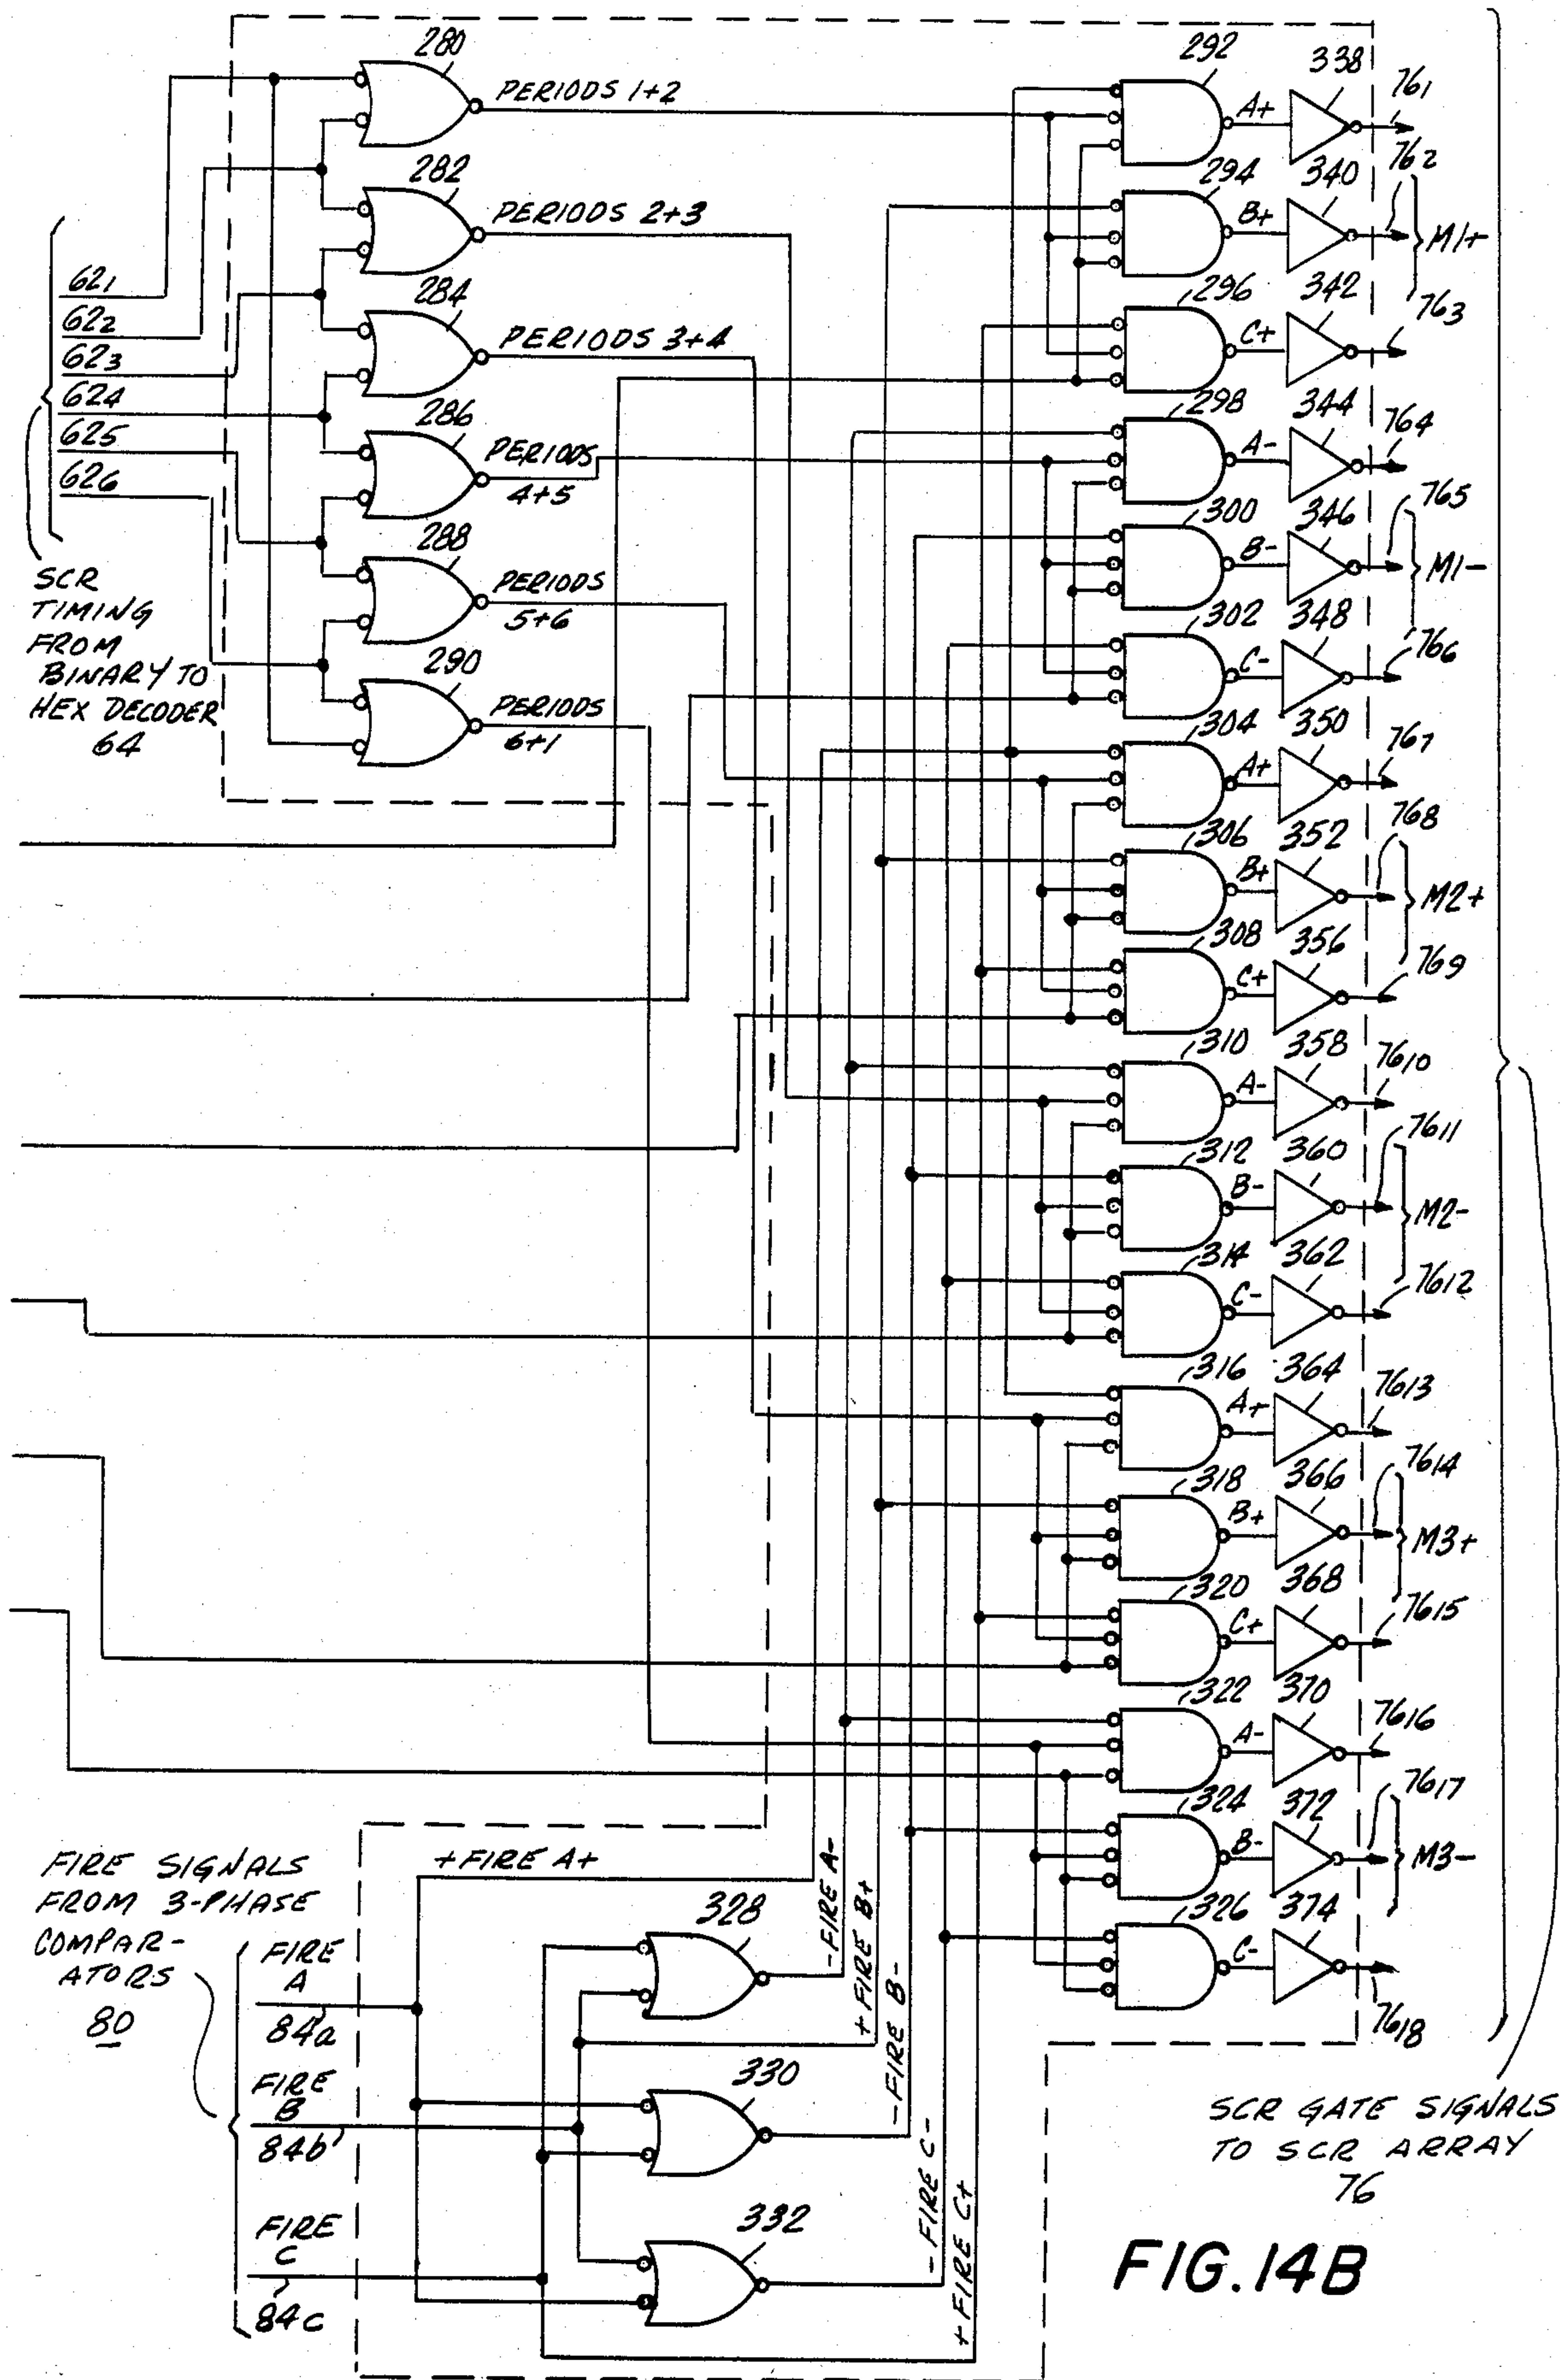 280
PERIODS 1+2
282
PERIODS 2+3
284
PERIODS 3+4
286
PERIODS
4+5
288
PERIODS
5+6
290
PERIODS
6+1
621
622
623
624
625
626
SCR
TIMING
FROM
BINARY TO
HEX DECODER
64
292
A+
338
761
294
B+
340
762
M1+
296
C+
342
763
298
A-
344
764
300
B-
346
765
M1-
302
C-
348
766
304
A+
350
767
306
B+
352
768
M2+
308
C+
356
769
310
A-
358
7610
312
B-
360
7611
M2-
314
C-
362
7612
316
A+
364
7613
318
B+
366
7614
M3+
320
C+
368
7615
322
A-
370
7616
324
B-
372
7617
M3-
326
C-
374
7618
FIRE SIGNALS
FROM 3-PHASE
COMPAR-
ATORS
80
FIRE
A
84a
FIRE
B
84b
FIRE
C
84c
+FIRE A+
328
330
332
-FIRE A-
+FIRE B+
-FIRE B-
-FIRE C-
+FIRE C+
SCR GATE SIGNALS
TO SCR ARRAY
76
FIG.14B